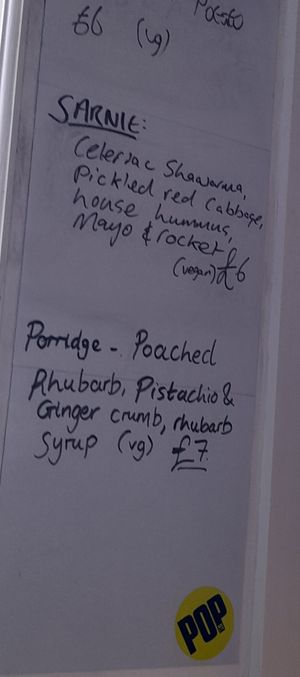 Potato
£6 (vg)
SARNIE:
Celeriac Shawarma,
Pickled red Cabbage,
house hummus,
Mayo & rocket
(vegan) £6
Porridge - Poached
Rhubarb, Pistachio &
Ginger crumb, rhubarb
Syrup (vg) £7
POP